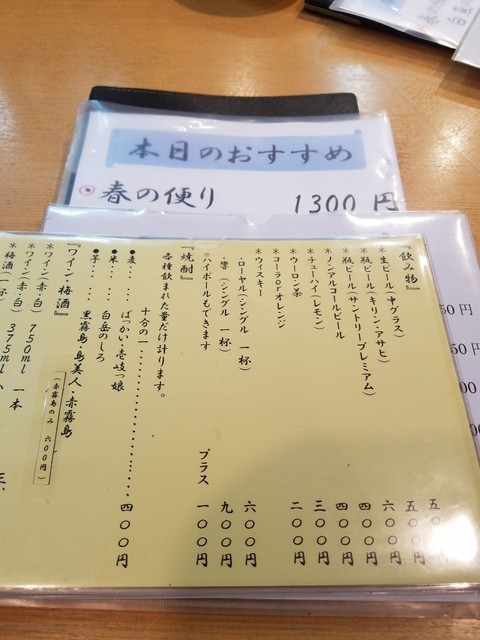 本日のおすすめ
春の便り 1300 円
『飲み物』
＊生ビール(中グラス) 五〇
＊瓶ビール(キリン・アサヒ) 五〇〇円
＊瓶ビール(サントリープレミアム) 六〇〇円
＊ノンアルコールビール 四〇〇円
＊チューハイ(レモン) 四〇〇円
＊ウーロン茶 三〇〇円
＊コーラorオレンジ 二〇〇円
＊ウィスキー
・ローヤル(シングル 一杯) 六〇〇円
・響(シングル 一杯) 九〇〇円
＊ハイボールもできます プラス 一〇〇円
『焼酎』
各種飲まれた量だけ計ります。
十分の一‥‥‥‥‥‥‥‥ 四〇〇円
●麦… ばっかい・壱岐っ娘
●米… 白岳のしろ
●芋… 黒霧島・島美人・赤霧島
(赤霧島のみ 六〇〇円)
『ワイン・梅酒』
＊ワイン(赤・白) 750ml 一本
＊ワイン(赤・白) 375ml
＊梅酒(一杯)
50円
50円
00円